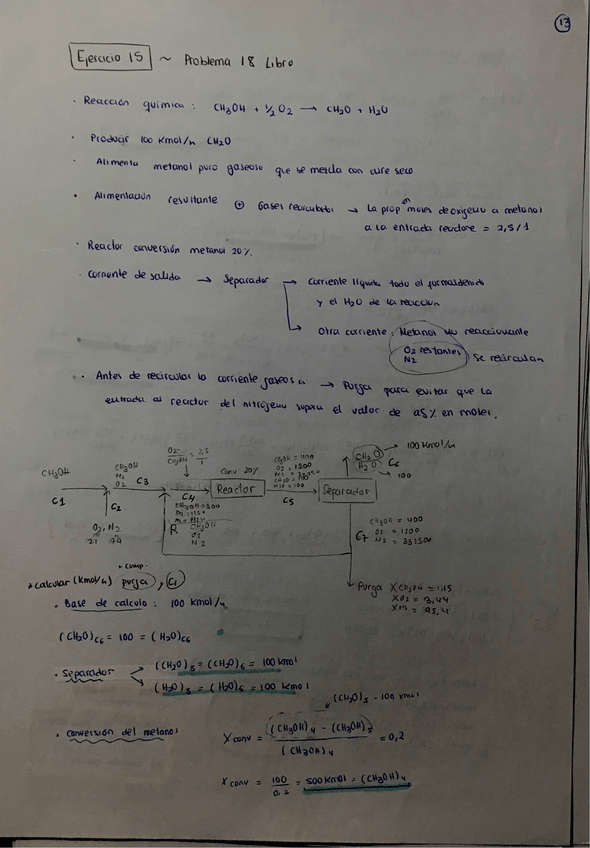 13
Ejercicio 15 ~ Problema 18 Libro
· Reacción química: CH3OH + 1/2 O2 → CH2O + H2O
· Producir 100 Kmol/h CH2O
· Alimenta metanol puro gaseoso que se mezcla con aire seco
· Alimentación resultante ⊕ Gases recirculados → La prop en moles de oxígeno a metanol
a la entrada reactor = 2,5/1
· Reactor conversión metanol 20%.
· corriente de salida → Separador → Corriente líquida todo el formaldehído
y el H2O de la reacción
↳ Otra corriente: Metanol no reaccionante
O2 restantes
N2
Se recirculan
· Antes de recircular la corriente gaseosa → Purga para evitar que la
entrada al reactor del nitrógeno supera el valor de 95% en moles.
CH3OH
C1
CH3OH
N2
O2
C3
C2
O2, N2
21 79
O2 / CH3OH = 2,5 / 1
C4
R
CH3OH
O2
N2
Conv 20%
Reactor
CH3OH = 400
O2 = 1200
C5
Separador
CH2O
H2O
C6
100 Kmol/h
100
C7
CH3OH = 400
O2 = 1200
Purga
XCH3OH = 1,15
XO2 = 3,44
XN2 = 95,4
+ comp
* calcular (Kmol/h) purga, C1
· Base de calculo: 100 kmol/h
(CH2O)C6 = 100 = (H2O)C6
· Separador
(CH2O)5 = (CH2O)6 = 100 kmol
(H2O)5 = (H2O)6 = 100 Kmol
(CH2O)5 = 100 kmol
· Conversión del metanol
X conv = ((CH3OH)4 - (CH3OH)5) / (CH3OH)4 = 0,2
X conv = 100 / 0.2 = 500 kmol = (CH3OH)4